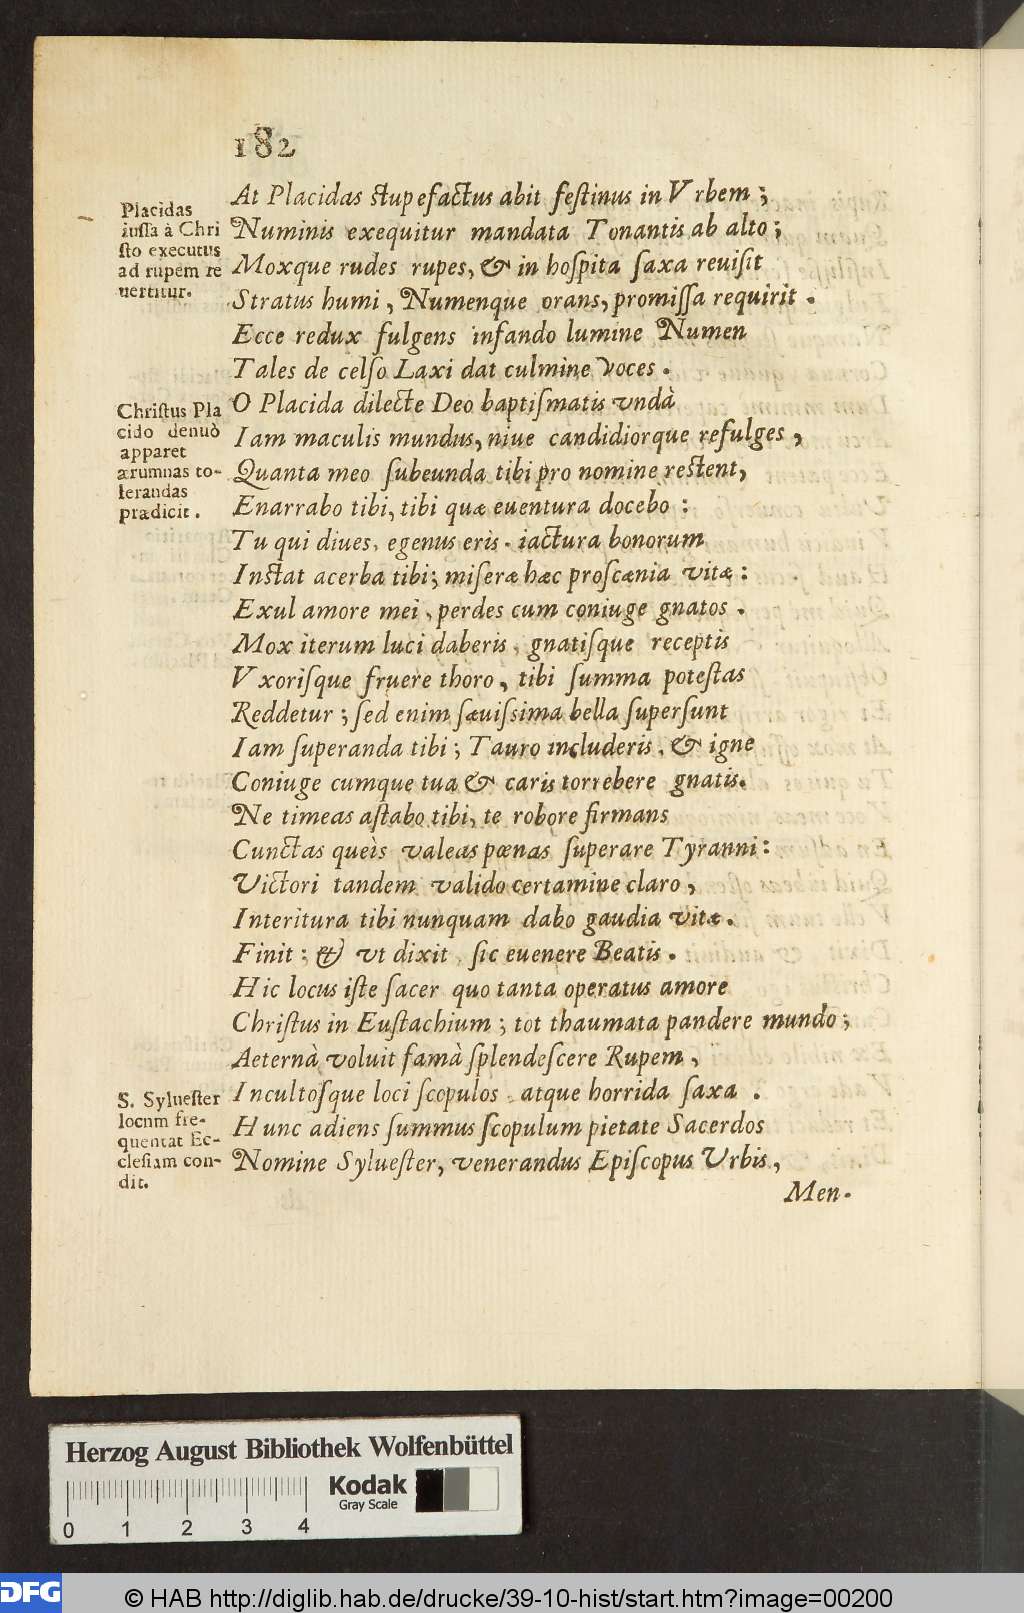 182
Placidas
iussa à Chri
sto executus
ad rupem re
uertitur.
At Placidas stupefactus abit festinus in Vrbem;
Numinis exequitur mandata Tonantis ab alto;
Moxque rudes rupes, & in hospita saxa reuisit
Stratus humi, Numenque orans, promissa requirit.
Ecce redux fulgens infando lumine Numen
Tales de celso Laxi dat culmine voces.
Christus Pla
cido denuò
apparet
ærumnas to-
lerandas
prædicit.
O Placida dilecte Deo baptismatis vndà
Iam maculis mundus, niue candidiorque refulges,
Quanta meo subeunda tibi pro nomine restent,
Enarrabo tibi, tibi quæ euentura docebo:
Tu qui diues, egenus eris. iactura bonorum
Instat acerba tibi; miseræ hæc proscænia vitæ:
Exul amore mei, perdes cum coniuge gnatos.
Mox iterum luci daberis, gnatisque receptis
Vxorisque fruere thoro, tibi summa potestas
Reddetur; sed enim sæuissima bella supersunt
Iam superanda tibi; Tauro includeris, & igne
Coniuge cumque tua & caris torrebere gnatis.
Ne timeas astabo tibi, te robore firmans
Cunctas queìs valeas pœnas superare Tyranni:
Victori tandem valido certamine claro,
Interitura tibi nunquam dabo gaudia vitæ.
Finit: & vt dixit, sic euenere Beatis.
Hic locus iste sacer quo tanta operatus amore
Christus in Eustachium; tot thaumata pandere mundo;
Aeternà voluit famà splendescere Rupem,
Incultosque loci scopulos, atque horrida saxa.
S. Syluester
locnm fre-
quentat Ec-
clesiam con-
dit.
Hunc adiens summus scopulum pietate Sacerdos
Nomine Syluester, venerandus Episcopus Vrbis,
Men-
Herzog August Bibliothek Wolfenbüttel
Kodak
Gray Scale
0 1 2 3 4
DFG
© HAB http://diglib.hab.de/drucke/39-10-hist/start.htm?image=00200